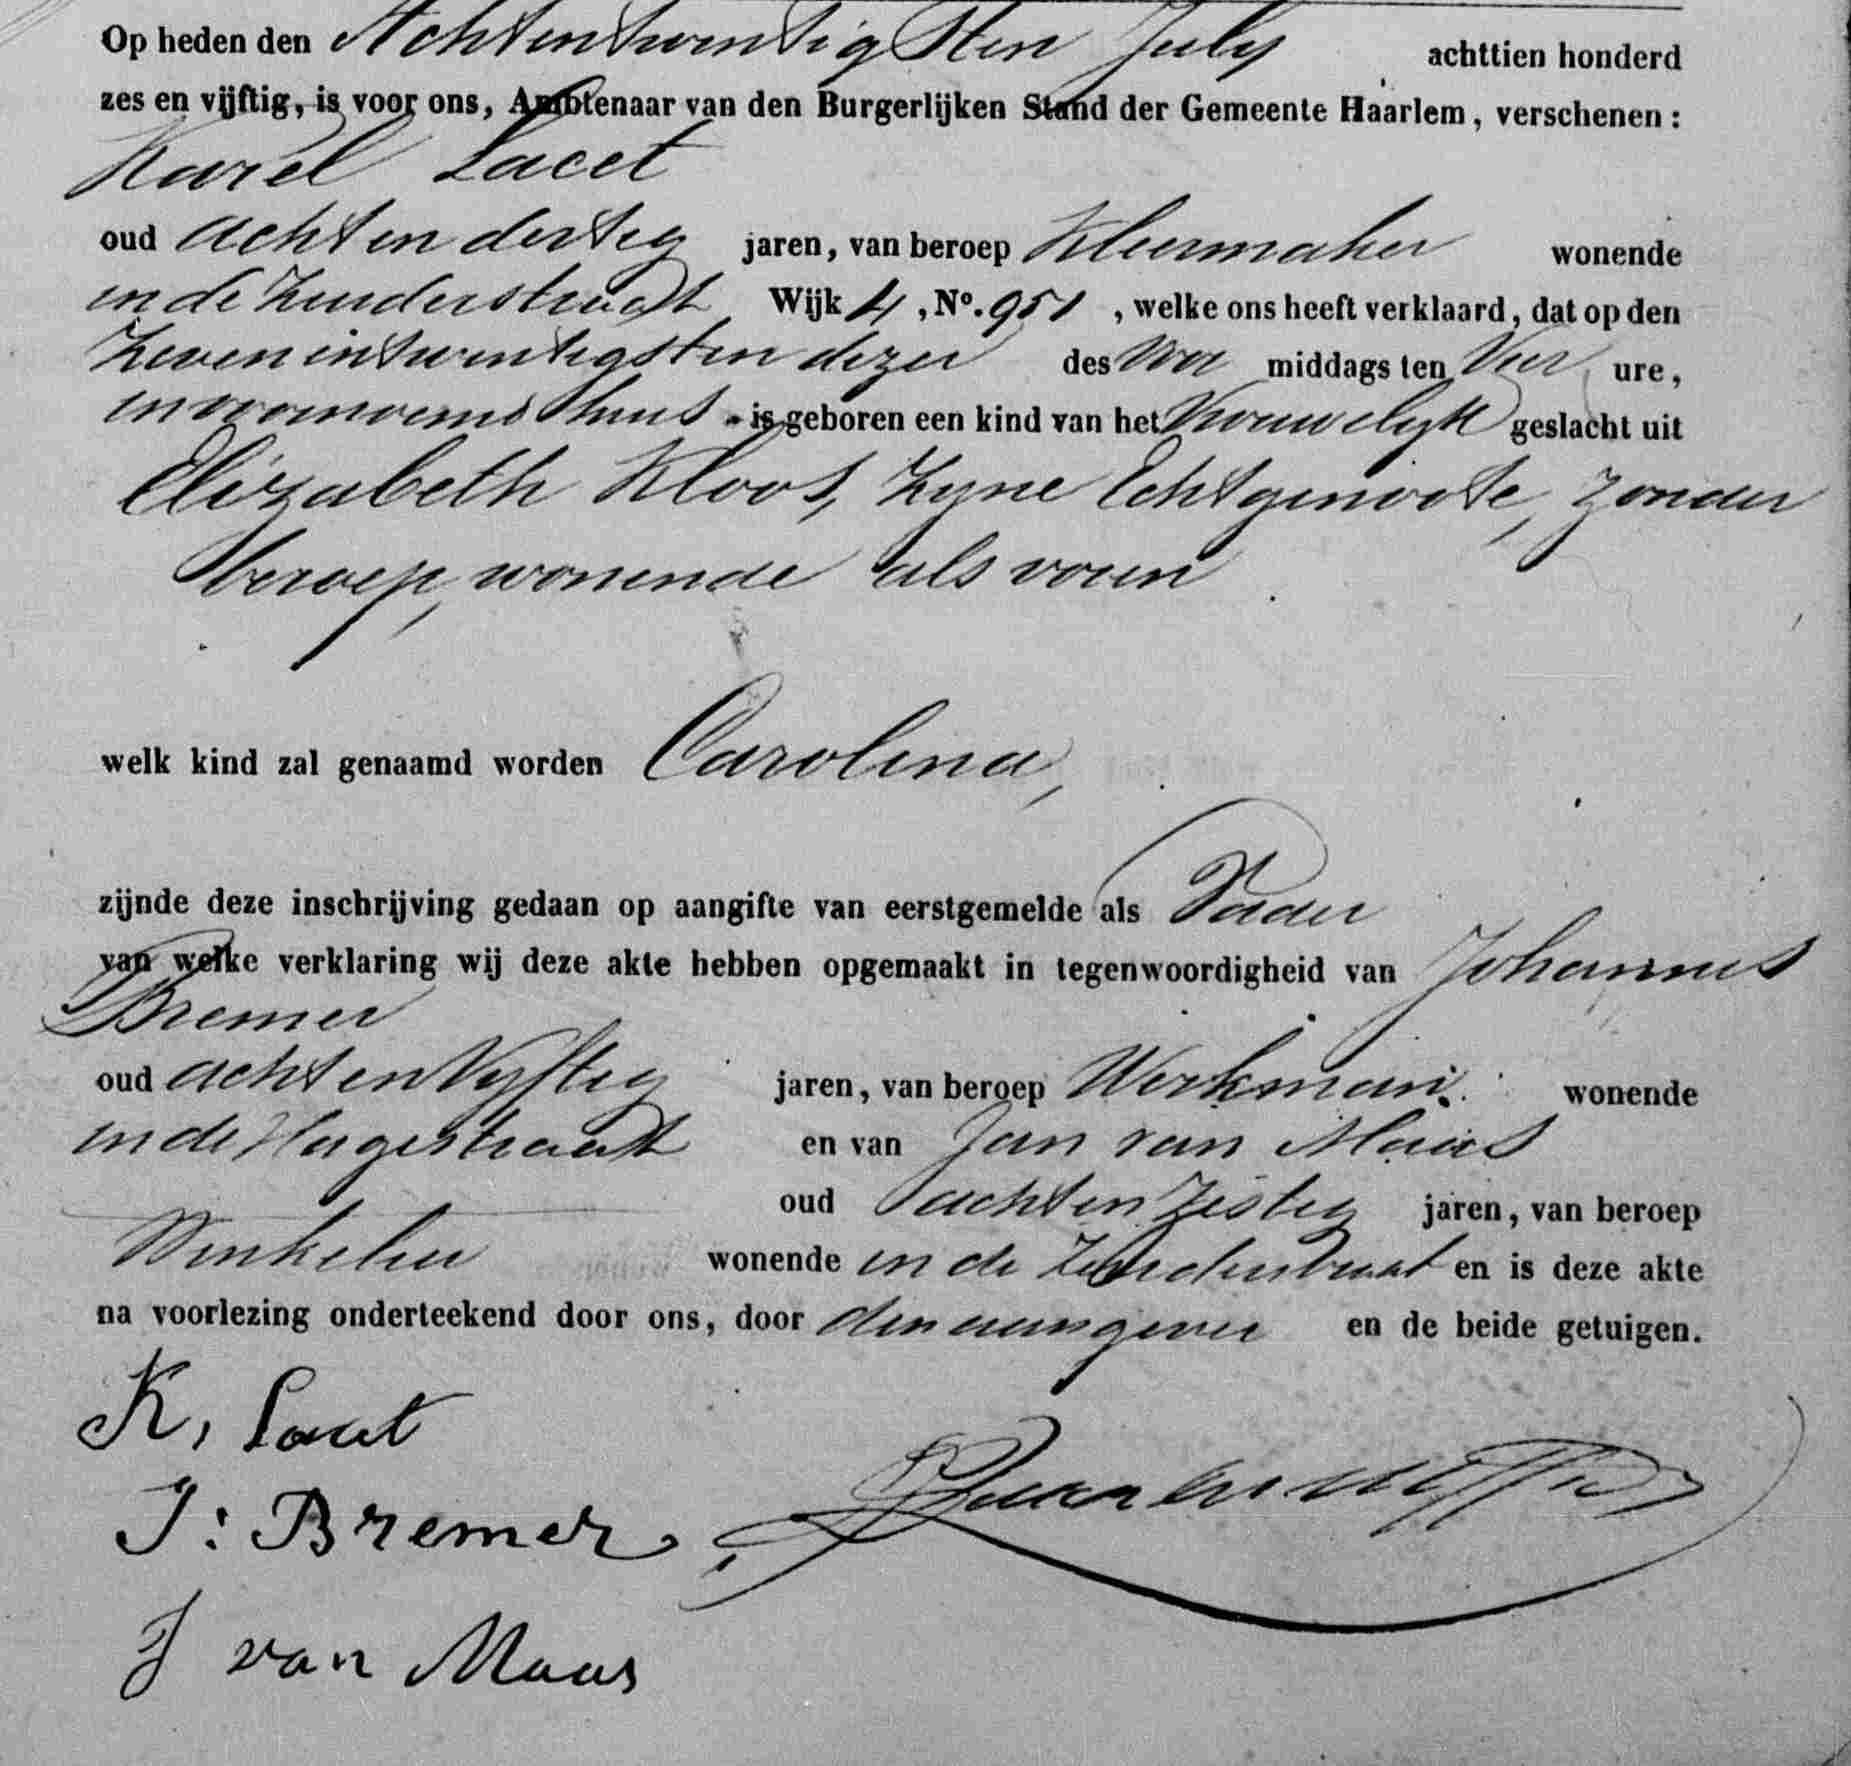 Op heden den Achtentwintigsten July achttien honderd
zes en vijftig, is voor ons, Ambtenaar van den Burgerlijken Stand der Gemeente Haarlem, verschenen:
Karel Lacet
oud achtendertig jaren, van beroep Kleermaker wonende
in de Zuiderstraat Wijk 4, No. 951, welke ons heeft verklaard, dat op den
Zevenentwintigsten dezer des voor middags ten Vier ure,
in voornoemd huis is geboren een kind van het Vrouwelyk geslacht uit
Elizabeth Kloos, Zyne Echtgenoote, Zonder
beroep, wonende als voren
welk kind zal genaamd worden Carolina,
zijnde deze inschrijving gedaan op aangifte van eerstgemelde als Vader
van welke verklaring wij deze akte hebben opgemaakt in tegenwoordigheid van Johannes
Bremer
oud achtenVyftig jaren, van beroep Werkman wonende
in de Hagestraat en van Jan van Maas
oud achtenZestig jaren, van beroep
Winkelier wonende in de Zuiderstraat en is deze akte
na voorlezing onderteekend door ons, door den aangever en de beide getuigen.
K, Lacet
J: Bremer
J van Maas